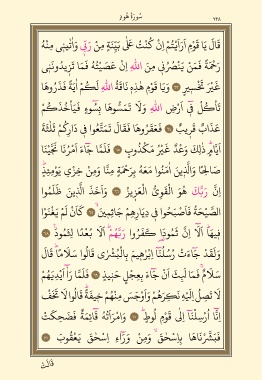 ٢٢٨
سُورَةُ هُودٍ
قَالَ يَا قَوْمِ اَرَاَيْتُمْ اِنْ كُنْتُ عَلٰى بَيِّنَةٍ مِنْ رَبّ۪ي وَاٰتٰين۪ي مِنْهُ
رَحْمَةً فَمَنْ يَنْصُرُن۪ي مِنَ اللّٰهِ اِنْ عَصَيْتُهُ فَمَا تَز۪يدُونَن۪ي
غَيْرَ تَخْس۪يرٍ ﴿٦٣﴾ وَيَا قَوْمِ هٰذِه۪ نَاقَةُ اللّٰهِ لَكُمْ اٰيَةً فَذَرُوهَا
تَأْكُلْ ف۪ٓي اَرْضِ اللّٰهِ وَلَا تَمَسُّوهَا بِسُٓوءٍ فَيَأْخُذَكُمْ
عَذَابٌ قَر۪يبٌ ﴿٦٤﴾ فَعَقَرُوهَا فَقَالَ تَمَتَّعُوا ف۪ي دَارِكُمْ ثَلٰثَةَ
اَيَّامٍ ذٰلِكَ وَعْدٌ غَيْرُ مَكْذُوبٍ ﴿٦٥﴾ فَلَمَّا جَٓاءَ اَمْرُنَا نَجَّيْنَا
صَالِحًا وَالَّذ۪ينَ اٰمَنُوا مَعَهُ بِرَحْمَةٍ مِنَّا وَمِنْ خِزْيِ يَوْمِئِذٍ
اِنَّ رَبَّكَ هُوَ الْقَوِيُّ الْعَز۪يزُ ﴿٦٦﴾ وَاَخَذَ الَّذ۪ينَ ظَلَمُوا
الصَّيْحَةُ فَاَصْبَحُوا ف۪ي دِيَارِهِمْ جَاثِم۪ينَ ﴿٦٧﴾ كَاَنْ لَمْ يَغْنَوْا
ف۪يهَا اَلَٓا اِنَّ ثَمُودَا۬ كَفَرُوا رَبَّهُمْ اَلَا بُعْدًا لِثَمُودَ ﴿٦٨﴾
وَلَقَدْ جَٓاءَتْ رُسُلُنَٓا اِبْرٰه۪يمَ بِالْبُشْرٰى قَالُوا سَلَامًا قَالَ
سَلَامٌ فَمَا لَبِثَ اَنْ جَٓاءَ بِعِجْلٍ حَن۪يذٍ ﴿٦٩﴾ فَلَمَّا رَآٰ اَيْدِيَهُمْ
لَا تَصِلُ اِلَيْهِ نَكِرَهُمْ وَاَوْجَسَ مِنْهُمْ خ۪يفَةً قَالُوا لَا تَخَفْ
اِنَّٓا اُرْسِلْنَٓا اِلٰى قَوْمِ لُوطٍ ﴿٧٠﴾ وَامْرَاَتُهُ قَٓائِمَةٌ فَضَحِكَتْ
فَبَشَّرْنَاهَا بِاِسْحٰقَ وَمِنْ وَرَٓاءِ اِسْحٰقَ يَعْقُوبَ ﴿٧١﴾
قَالَتْ